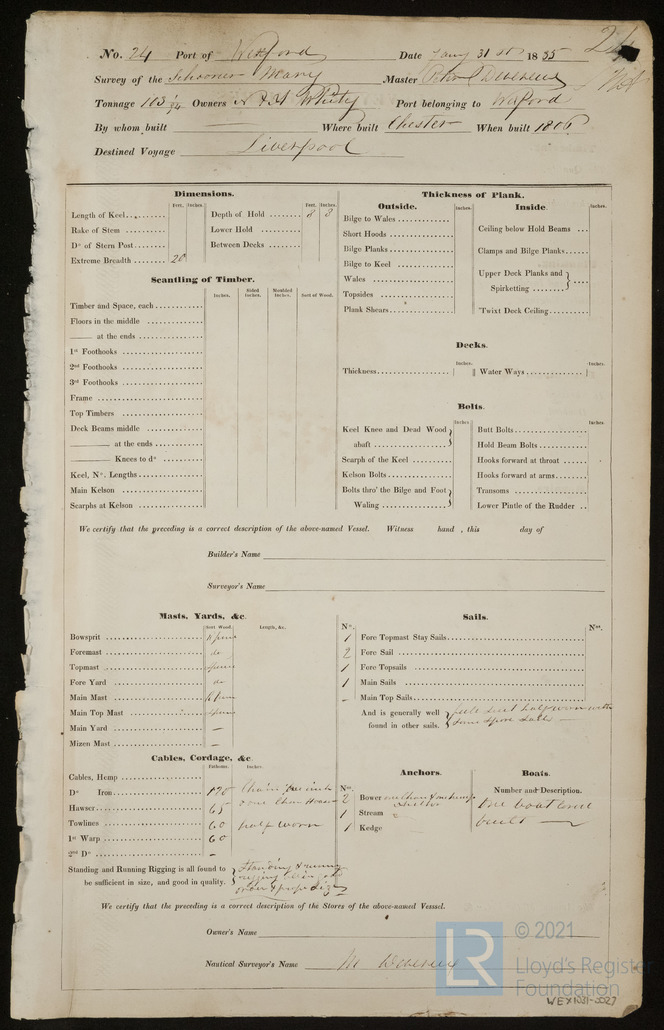 24
No. 24 Port of Wexford Date Jany 31 st 1835
Survey of the Schooner Mary Master Devereux
Tonnage 103 1/94 Owners N & H Whitty Port belonging to Wexford
By whom built — Where built Chester When built 1806
Destined Voyage Liverpool
Dimensions.
Feet. Inches.
Length of Keel
Rake of Stem
Do of Stern Post
Extreme Breadth 20
Feet. Inches.
Depth of Hold 8 8
Lower Hold
Between Decks
Scantling of Timber.
Inches. Sided Inches. Moulded Inches. Sort of Wood.
Timber and Space, each
Floors in the middle
—— at the ends
1st Foothooks
2nd Foothooks
3rd Foothooks
Frame
Top Timbers
Deck Beams middle
—— at the ends
—— Knees to do
Keel, No. Lengths
Main Kelson
Scarphs at Kelson
Thickness of Plank.
Outside. Inches.
Bilge to Wales
Short Hoods
Bilge Planks
Bilge to Keel
Wales
Topsides
Plank Shears
Inside. Inches.
Ceiling below Hold Beams
Clamps and Bilge Planks
Upper Deck Planks and
Spirketting
'Twixt Deck Ceiling
Decks.
Inches. Inches.
Thickness Water Ways
Bolts.
Inches
Keel Knee and Dead Wood
abaft
Scarph of the Keel
Kelson Bolts
Bolts thro' the Bilge and Foot
Waling
Inches.
Butt Bolts
Hold Beam Bolts
Hooks forward at throat
Hooks forward at arms
Transoms
Lower Pintle of the Rudder
We certify that the preceding is a correct description of the above-named Vessel. Witness hand , this day of
Builder's Name
Surveyor's Name
Masts, Yards, &c.
Sort Wood. Length, &c.
Bowsprit
Foremast do
Topmast
Fore Yard do
Main Mast
Main Top Mast
Main Yard —
Mizen Mast —
Sails.
No. Nos.
1 Fore Topmast Stay Sails
2 Fore Sail
1 Fore Topsails
1 Main Sails
— Main Top Sails
And is generally well
found in other sails.
Cables, Cordage, &c.
Fathoms. Inches.
Cables, Hemp
Do Iron 120 Chain inch
Hawser 65
Towlines 60 half worn
1st Warp 60
2nd Do —
Standing and Running Rigging is all found to
be sufficient in size, and good in quality.
Standing & running
rigging being good
Anchors.
No.
2 Bower
1 Stream
1 Kedge
Boats.
Number and Description.
one boat
built —
We certify that the preceding is a correct description of the Stores of the above-named Vesssel.
Owner's Name
Nautical Surveyor's Name M Devereux
LR © 2021
Lloyd's Register
Foundation
WEX1031-0027